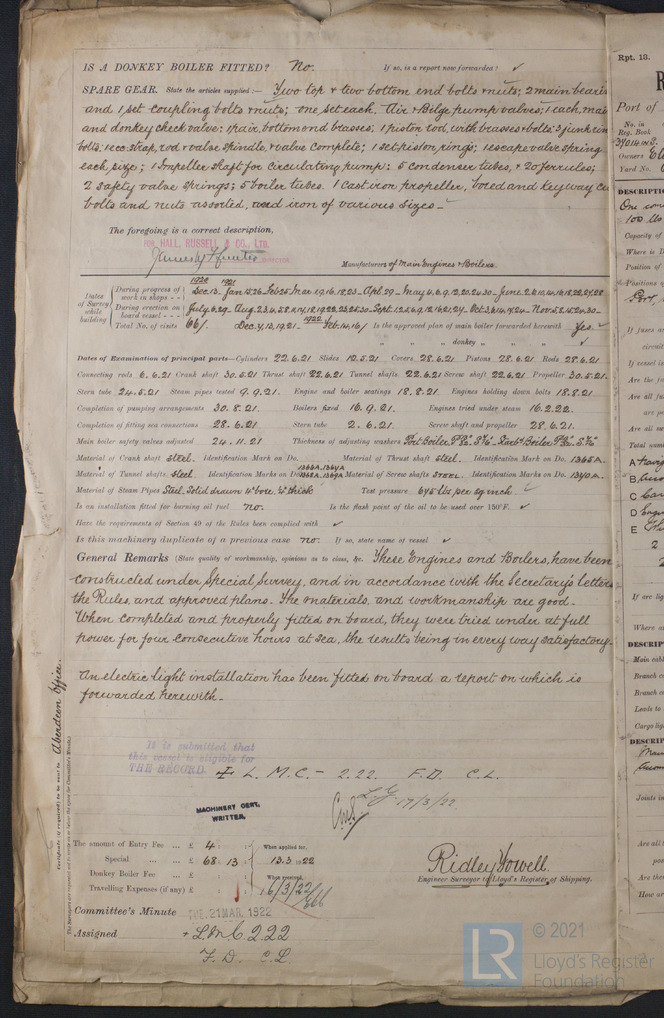 IS A DONKEY BOILER FITTED? No. If so, is a report now forwarded? ✓
SPARE GEAR. State the articles supplied:— Two top & two bottom end bolts & nuts; 2 main
and 1 set coupling bolts & nuts; one set each Air & Bilge pump valves; 1 each
and donkey check valve; 1 pair bottom end brasses; 1 piston rod, with brasses & bolts; 3 junk
bolts; 1 ecc: strap, rod & valve spindle, & valve complete; 1 set piston rings; 1 escape valve spring
each size; 1 Impeller shaft for circulating pump; 5 condenser tubes, & 20 ferrules;
2 safety valve springs; 5 boiler tubes. 1 cast iron propeller, bored and keyway
bolts and nuts assorted, and iron of various sizes.
The foregoing is a correct description,
FOR HALL, RUSSELL & CO., LTD.
Manufacturers of Main Engines & Boilers
Dates of Survey while building
1920 1921
During progress of work in shops - - Dec. 13, Jan. 15.26 Feb 25 Mar 1.9.16.18.23 Apl 29 May 4.6.9.12.20.24.30 June 2.6.10.14.16.18.22.27.28
During erection on board vessel - - - July 6.29 Aug. 2.3.4.5.8.11.17.18.19.22.23.25.30 Sept. 1.2.5.6.9.12.16.21.27. Oct. 3.6.14.17.24 Nov 5.8.15.24.30
Total No. of visits 66. Dec. 7, 13, 19.21. 1922 Feb. 14. 16 Is the approved plan of main boiler forwarded herewith Yes. ✓
" " donkey " " " ✓
Dates of Examination of principal parts—Cylinders 22.6.21 Slides 12.5.21 Covers 28.6.21 Pistons 28.6.21 Rods 28.6.21
Connecting rods 6.6.21 Crank shaft 30.5.21 Thrust shaft 22.6.21 Tunnel shafts 22.6.21 Screw shaft 22.6.21 Propeller 30.5.21
Stern tube 24.5.21 Steam pipes tested 9.9.21. Engine and boiler seatings 18.8.21. Engines holding down bolts 18.8.21
Completion of pumping arrangements 30.8.21 Boilers fixed 16.9.21. Engines tried under steam 16.2.22.
Completion of fitting sea connections 28.6.21 Stern tube 2.6.21. Screw shaft and propeller 28.6.21.
Main boiler safety valves adjusted 24.11.21 Thickness of adjusting washers
Material of Crank shaft Steel. Identification Mark on Do. Material of Thrust shaft Steel. Identification Mark on Do. 1365A.
Material of Tunnel shafts Steel Identification Marks on Do. 1366A.1367A 1368A.1369A Material of Screw shafts STEEL. Identification Marks on Do. 1370A.
Material of Steam Pipes Steel, Solid drawn 4" bore, ¼" thick Test pressure 675 lbs per sq. inch ✓
Is an installation fitted for burning oil fuel no. Is the flash point of the oil to be used over 150°F. ✓
Have the requirements of Section 49 of the Rules been complied with ✓
Is this machinery duplicate of a previous case no. If so, state name of vessel ✓
General Remarks (State quality of workmanship, opinions as to class, &c. These Engines and Boilers, have been
constructed under Special Survey, and in accordance with the Secretary's letters
the Rules, and approved plans. The materials, and workmanship are good.
When completed and properly fitted on board, they were tried under at full
power for four consecutive hours at sea, the results being in every way satisfactory.
An electric light installation has been fitted on board a report on which is
forwarded herewith.
It is submitted that
this vessel is eligible for
THE RECORD. + L. M. C. – 2.22. F.D. C.L.
17/3/22
MACHINERY CERT.
WRITTEN.
The amount of Entry Fee ... £ 4 : : When applied for,
Special ... ... £ 68 : 13 : 13.3.22
Donkey Boiler Fee ... £ : : When received,
Travelling Expenses (if any) £ : : 16/3/22
Ridley Howell.
Engineer Surveyor to Lloyd's Register of Shipping.
Committee's Minute TUE. 21 MAR. 1922
Assigned + L.M.C 2.22
F.D. C.L.
Aberdeen Office.
Rpt. 13.
Port of
No. in
Reg. Book
Owners
Yard No.
DESCRIPTI
100 lbs
Capacity of
Where is D
Position of
Positions of
If fuses a
circuit
If vessel i
Are the f
Are all fu
are p
Total num
A
B
C
D
E
If arc lig
Where a
DESCRIP
Main cabl
Branch c
Branch c
Leads to
Cargo lig
DESCRIP
Joints in
Are all t
pos
Are the
How ar
LR
© 2021
Lloyd's Register
Foundation